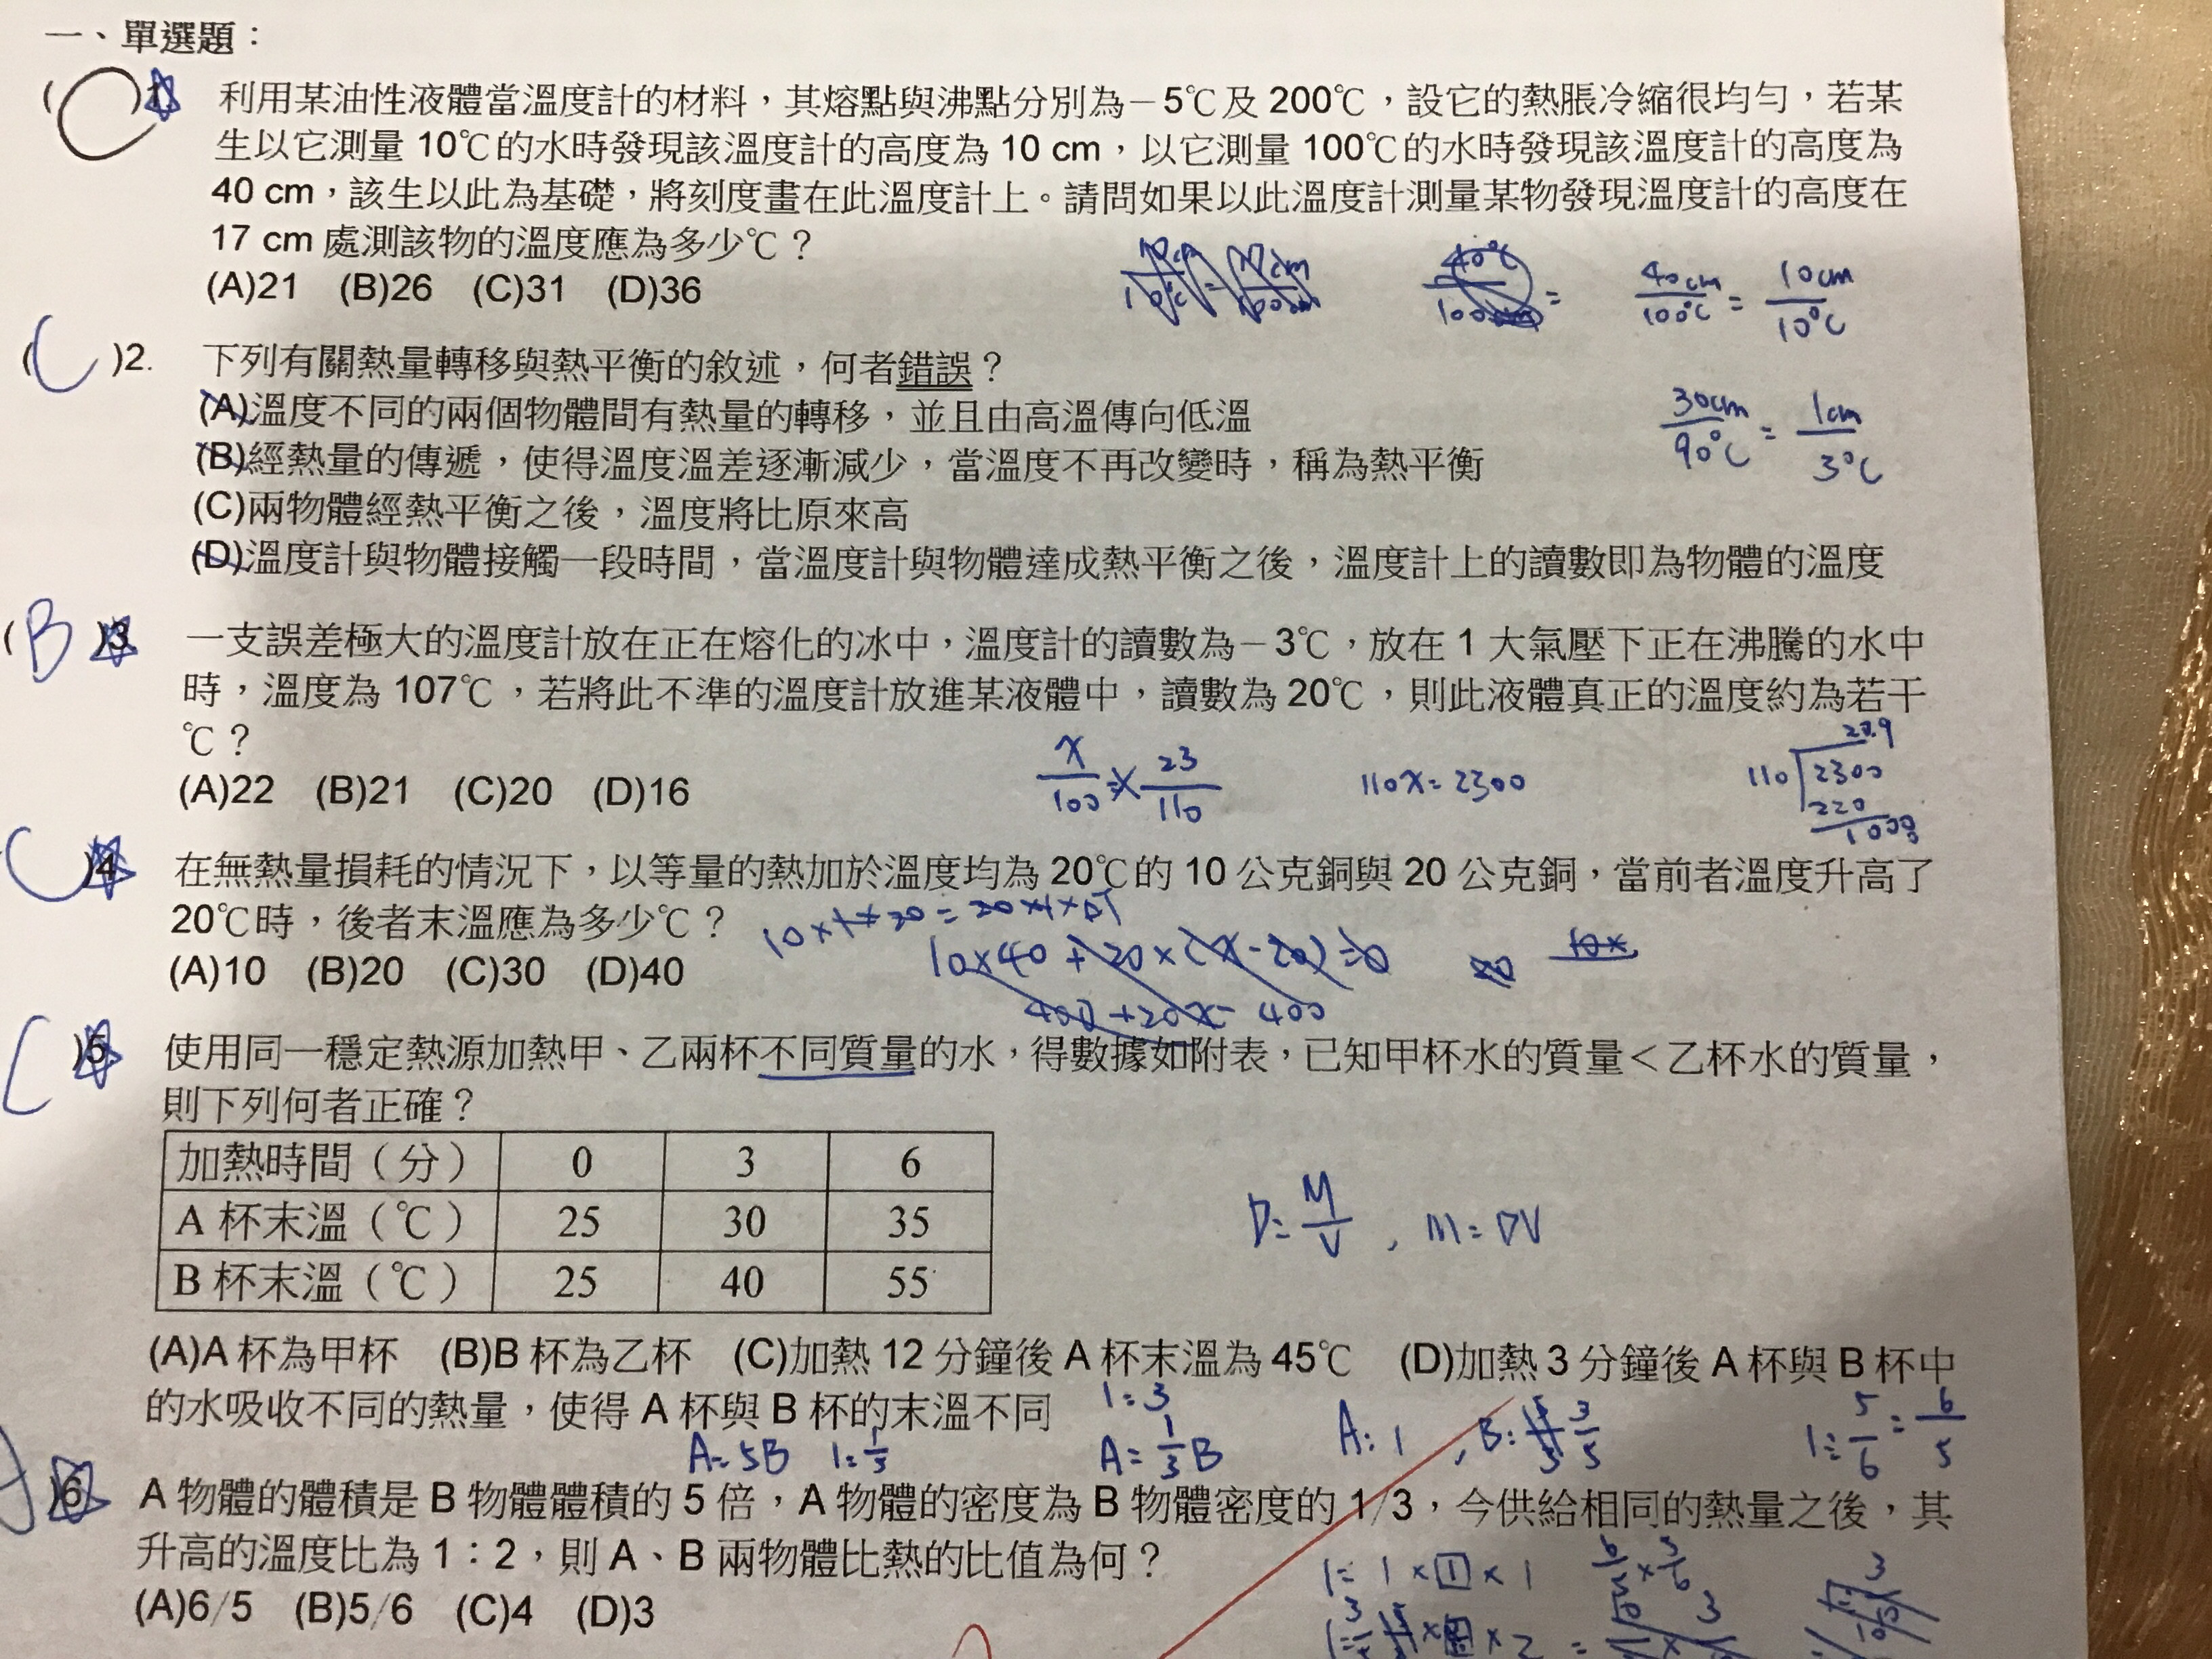 一、單選題：
(C)1. 利用某油性液體當溫度計的材料，其熔點與沸點分別為－5℃及 200℃，設它的熱脹冷縮很均勻，若某
生以它測量 10℃的水時發現該溫度計的高度為 10 cm，以它測量 100℃的水時發現該溫度計的高度為
40 cm，該生以此為基礎，將刻度畫在此溫度計上。請問如果以此溫度計測量某物發現溫度計的高度在
17 cm 處測該物的溫度應為多少℃？
(A)21 (B)26 (C)31 (D)36
40cm/100℃ = 10cm/10℃
(C)2. 下列有關熱量轉移與熱平衡的敘述，何者錯誤？
(A)溫度不同的兩個物體間有熱量的轉移，並且由高溫傳向低溫
(B)經熱量的傳遞，使得溫度溫差逐漸減少，當溫度不再改變時，稱為熱平衡
30cm/90℃ = 1cm/3℃
(C)兩物體經熱平衡之後，溫度將比原來高
(D)溫度計與物體接觸一段時間，當溫度計與物體達成熱平衡之後，溫度計上的讀數即為物體的溫度
(B)3. 一支誤差極大的溫度計放在正在熔化的冰中，溫度計的讀數為－3℃，放在 1 大氣壓下正在沸騰的水中
時，溫度為 107℃，若將此不準的溫度計放進某液體中，讀數為 20℃，則此液體真正的溫度約為若干
℃？
(A)22 (B)21 (C)20 (D)16
x/100 = 23/110 110x=2300
20.9
110 2300
220
1000
(C)4 在無熱量損耗的情況下，以等量的熱加於溫度均為 20℃的 10 公克銅與 20 公克銅，當前者溫度升高了
20℃時，後者末溫應為多少℃？
(A)10 (B)20 (C)30 (D)40
10×40+20×(x-20)=0
400+20x-400
C)5 使用同一穩定熱源加熱甲、乙兩杯不同質量的水，得數據如附表，已知甲杯水的質量＜乙杯水的質量，
則下列何者正確？
加熱時間（分） 0 3 6
A 杯末溫（℃） 25 30 35
B 杯末溫（℃） 25 40 55
D=M/V , M=DV
(A)A 杯為甲杯 (B)B 杯為乙杯 (C)加熱 12 分鐘後 A 杯末溫為 45℃ (D)加熱 3 分鐘後 A 杯與 B 杯中
的水吸收不同的熱量，使得 A 杯與 B 杯的末溫不同
1:3
A=5B A=1/3B A:1 , B: 3/5
)6 A 物體的體積是 B 物體體積的 5 倍，A 物體的密度為 B 物體密度的 1/3，今供給相同的熱量之後，其
升高的溫度比為 1：2，則 A、B 兩物體比熱的比值為何？
(A)6/5 (B)5/6 (C)4 (D)3
1=1×1×1